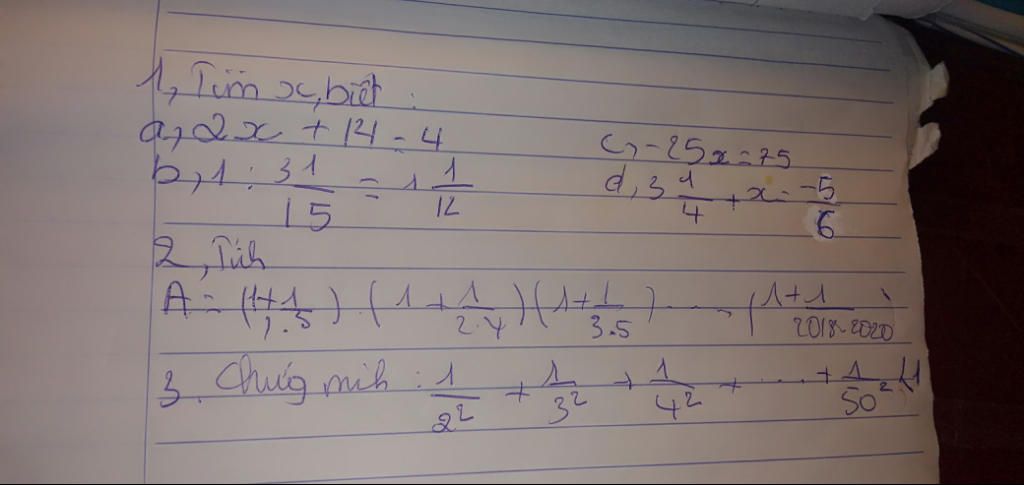 1, Tìm x, biết :
a, 2x + 14 = 4
c, -25x = 75
b, 1 : 31/15 = 1 1/12
d, 3 1/4 + x = -5/6
2, Tính
A = (1+1/1.3) . (1 + 1/2.4) (1 + 1/3.5) ..... (1+1/2018.2020)
3. Chứng minh : 1/2² + 1/3² + 1/4² + ..... + 1/50² < 1